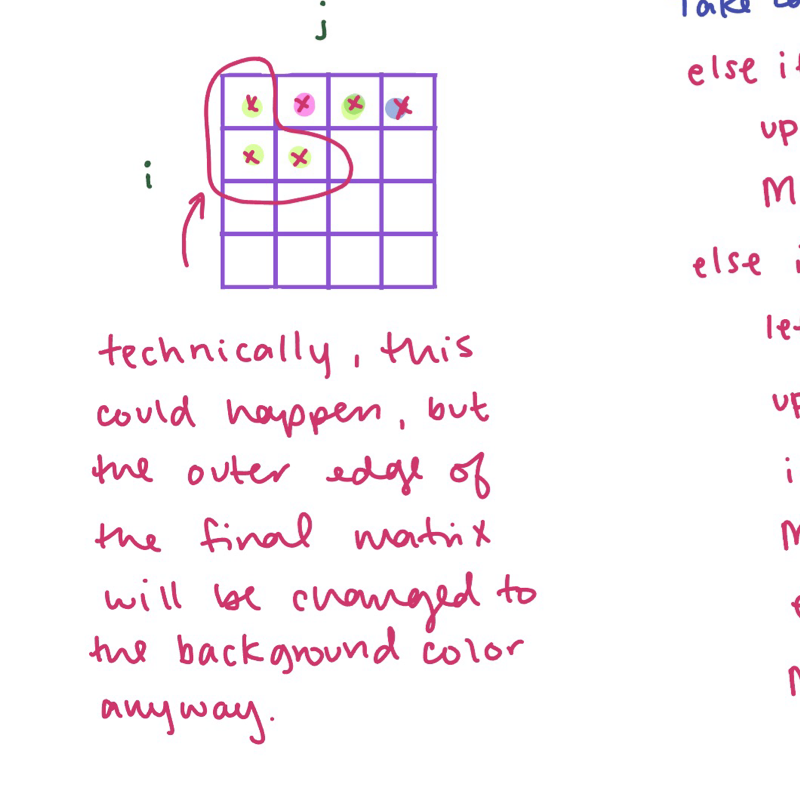 j
i
technically, this
could happen, but
the outer edge of
the final matrix
will be changed to
the background color
anyway.
else
up
else